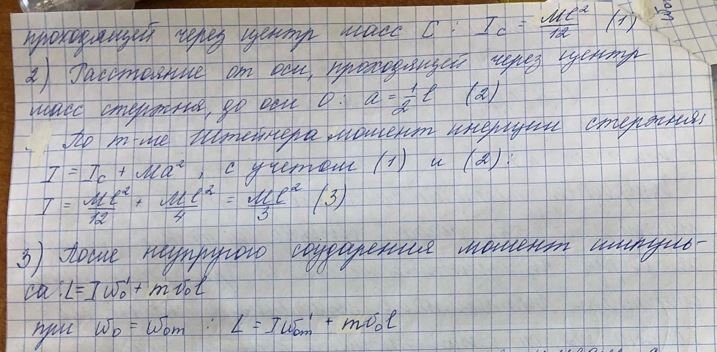 проходящей через центр масс C : I_c = Ml²/12 (1)
2) Расстояние от оси, проходящей через центр
масс стержня, до оси O : a = 1/2 l (2)
По т-ме Штейнера момент инерции стержня:
I = I_c + Ma² , с учетом (1) и (2):
I = Ml²/12 + Ml²/4 = Ml²/3 (3)
3) После неупругого соударения момент импуль-
са: L = Iω₀' + mv₀l
при ω₀ = ω₀m : L = Iω₀m' + mv₀l